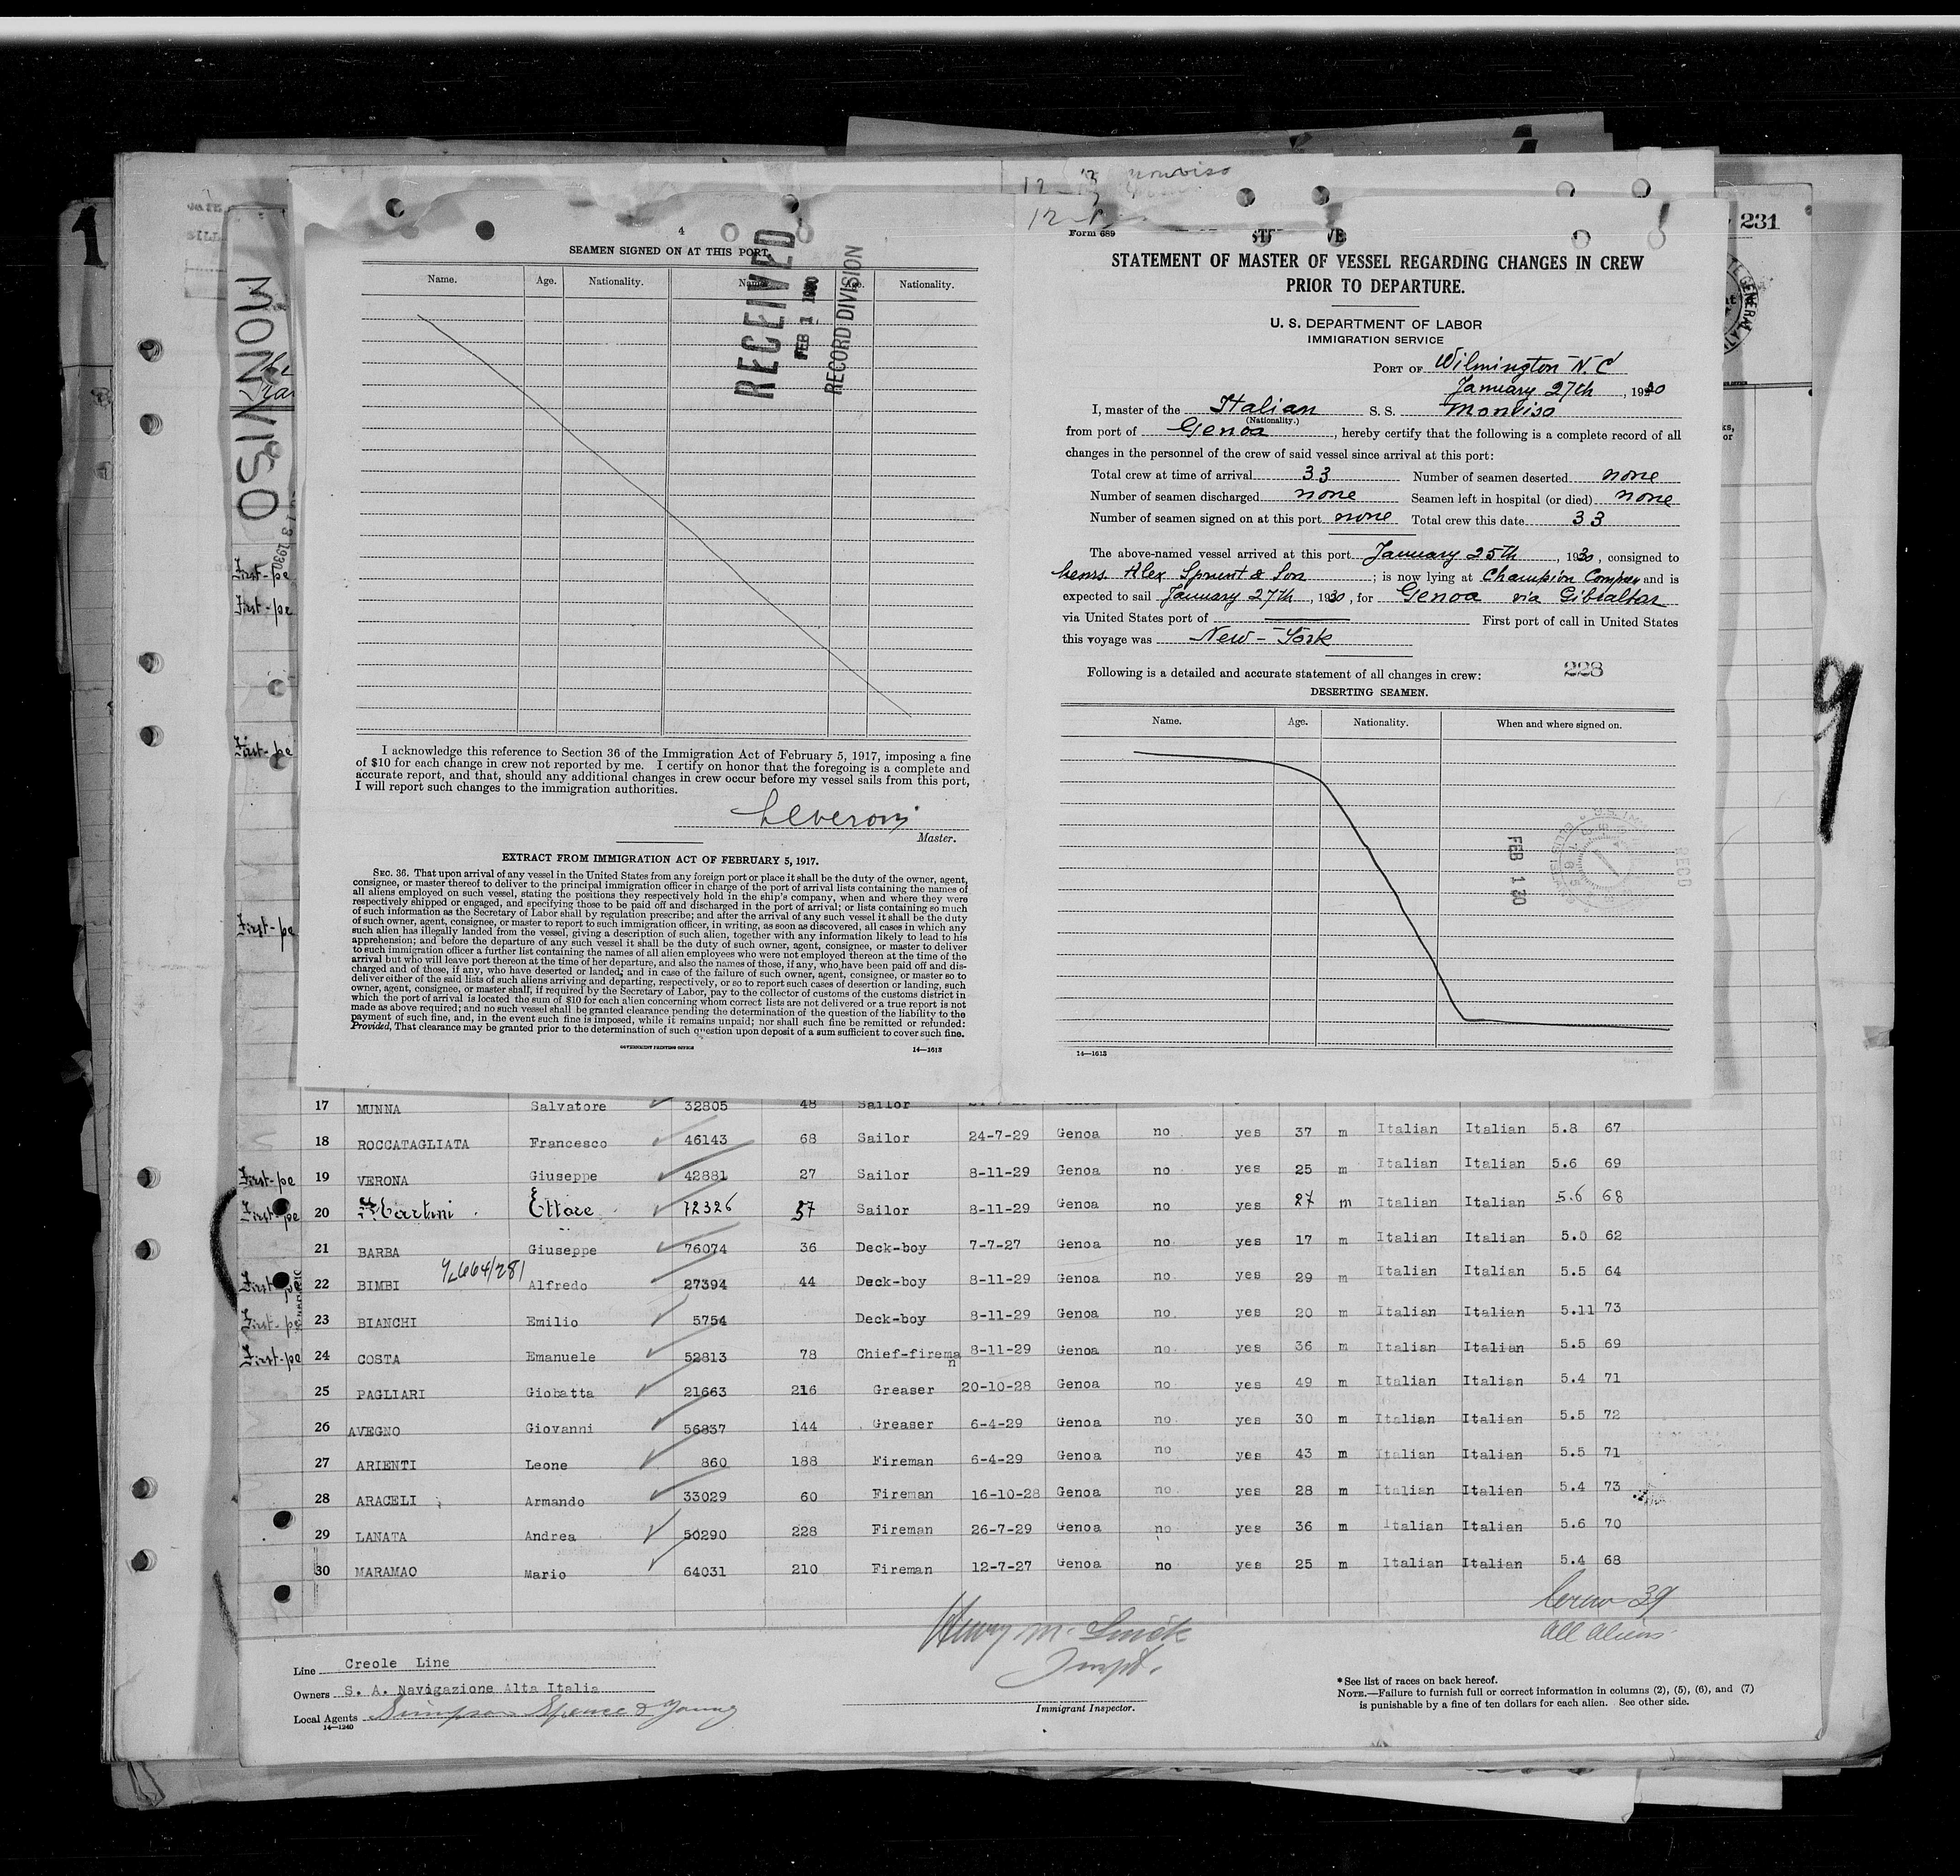 1
MONVISO
231
12-3 Monviso
12-
4
SEAMEN SIGNED ON AT THIS PORT.
Name. Age. Nationality. Name. Age. Nationality.
RECEIVED
FEB 1 1930
RECORD DIVISION
I acknowledge this reference to Section 36 of the Immigration Act of February 5, 1917, imposing a fine
of $10 for each change in crew not reported by me. I certify on honor that the foregoing is a complete and
accurate report, and that, should any additional changes in crew occur before my vessel sails from this port,
I will report such changes to the immigration authorities.
Master.
EXTRACT FROM IMMIGRATION ACT OF FEBRUARY 5, 1917.
SEC. 36. That upon arrival of any vessel in the United States from any foreign port or place it shall be the duty of the owner, agent,
consignee, or master thereof to deliver to the principal immigration officer in charge of the port of arrival lists containing the names of
all aliens employed on such vessel, stating the positions they respectively hold in the ship's company, when and where they were
respectively shipped or engaged, and specifying those to be paid off and discharged in the port of arrival; or lists containing so much
of such information as the Secretary of Labor shall by regulation prescribe; and after the arrival of any such vessel it shall be the duty
of such owner, agent, consignee, or master to report to such immigration officer, in writing, as soon as discovered, all cases in which any
such alien has illegally landed from the vessel, giving a description of such alien, together with any information likely to lead to his
apprehension; and before the departure of any such vessel it shall be the duty of such owner, agent, consignee, or master to deliver
to such immigration officer a further list containing the names of all alien employees who were not employed thereon at the time of the
arrival but who will leave port thereon at the time of her departure, and also the names of those, if any, who have been paid off and dis-
charged and of those, if any, who have deserted or landed; and in case of the failure of such owner, agent, consignee, or master so to
deliver either of the said lists of such aliens arriving and departing, respectively, or so to report such cases of desertion or landing, such
owner, agent, consignee, or master shall, if required by the Secretary of Labor, pay to the collector of customs of the customs district in
which the port of arrival is located the sum of $10 for each alien concerning whom correct lists are not delivered or a true report is not
made as above required; and no such vessel shall be granted clearance pending the determination of the question of the liability to the
payment of such fine, and, in the event such fine is imposed, while it remains unpaid; nor shall such fine be remitted or refunded:
Provided, That clearance may be granted prior to the determination of such question upon deposit of a sum sufficient to cover such fine.
GOVERNMENT PRINTING OFFICE 14—1613
Form 689
STATEMENT OF MASTER OF VESSEL REGARDING CHANGES IN CREW
PRIOR TO DEPARTURE.
U. S. DEPARTMENT OF LABOR
IMMIGRATION SERVICE
PORT OF Wilmington N. C
January 27th, 1930
I, master of the Italian S. S. Monviso
(Nationality.)
from port of Genoa, hereby certify that the following is a complete record of all
changes in the personnel of the crew of said vessel since arrival at this port:
Total crew at time of arrival 33 Number of seamen deserted none
Number of seamen discharged none Seamen left in hospital (or died) none
Number of seamen signed on at this port none Total crew this date 33
The above-named vessel arrived at this port January 25th, 1930, consigned to
Alex Sprunt & Son; is now lying at Champion and is
expected to sail January 27th, 1930, for Genoa via Gibraltar
via United States port of First port of call in United States
this voyage was New-York
Following is a detailed and accurate statement of all changes in crew: 228
DESERTING SEAMEN.
Name. Age. Nationality. When and where signed on.
FEB 1 30
RECD
14—1613
9
17 MUNNA Salvatore 32805 48 Sailor
18 ROCCATAGLIATA Francesco 46143 68 Sailor 24-7-29 Genoa no yes 37 m Italian Italian 5.8 67
First-pe 19 VERONA Giuseppe 42881 27 Sailor 8-11-29 Genoa no yes 25 m Italian Italian 5.6 69
First-pe 20 Martini Ettore 72326 57 Sailor 8-11-29 Genoa no yes 27 m Italian Italian 5.6 68
21 BARBA Giuseppe 76074 36 Deck-boy 7-7-27 Genoa no yes 17 m Italian Italian 5.0 62
First-pe 22 BIMBI Alfredo 27394 44 Deck-boy 8-11-29 Genoa no yes 29 m Italian Italian 5.5 64
First-pe 23 BIANCHI Emilio 5754 Deck-boy 8-11-29 Genoa no yes 20 m Italian Italian 5.11 73
First-pe 24 COSTA Emanuele 52813 78 Chief-fireman 8-11-29 Genoa no yes 36 m Italian Italian 5.5 69
25 PAGLIARI Giobatta 21663 216 Greaser 20-10-28 Genoa no yes 49 m Italian Italian 5.4 71
26 AVEGNO Giovanni 56837 144 Greaser 6-4-29 Genoa no yes 30 m Italian Italian 5.5 72
27 ARIENTI Leone 860 188 Fireman 6-4-29 Genoa no yes 43 m Italian Italian 5.5 71
28 ARACELI Armando 33029 60 Fireman 16-10-28 Genoa no yes 28 m Italian Italian 5.4 73
29 LANATA Andrea 50290 228 Fireman 26-7-29 Genoa no yes 36 m Italian Italian 5.6 70
30 MARAMAO Mario 64031 210 Fireman 12-7-27 Genoa no yes 25 m Italian Italian 5.4 68
Crew 39
All Aliens
Line Creole Line
Owners S. A. Navigazione Alta Italia
Local Agents Simpson Spence & Young
14—1240
Immigrant Inspector.
*See list of races on back hereof.
NOTE.—Failure to furnish full or correct information in columns (2), (5), (6), and (7)
is punishable by a fine of ten dollars for each alien. See other side.